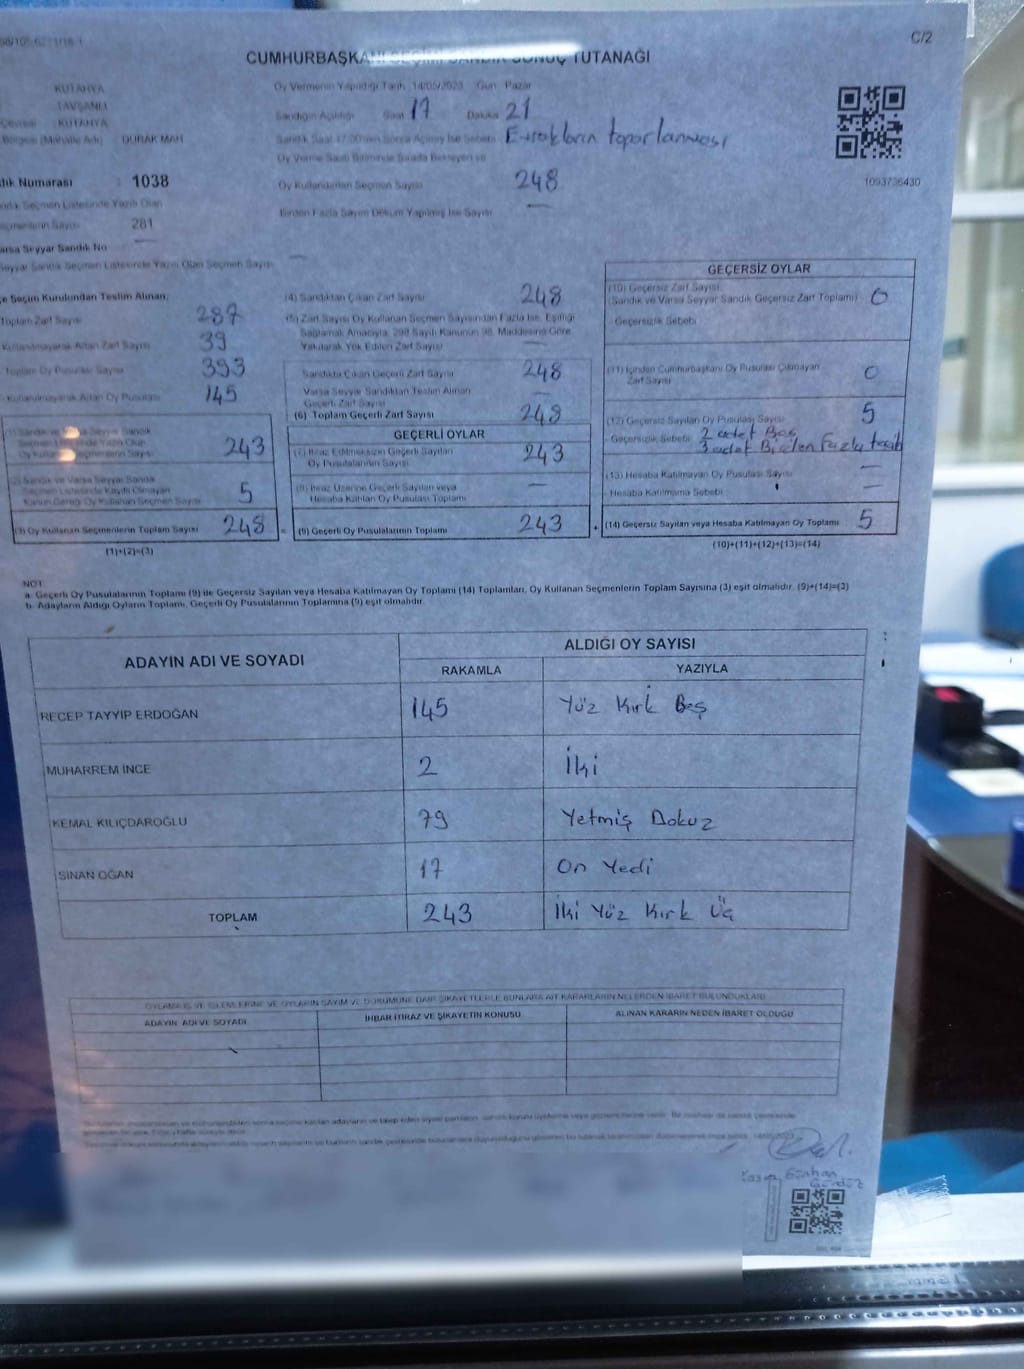 C/2
CUMHURBAŞKANI SEÇİMİ SANDIK SONUÇ TUTANAĞI
KÜTAHYA
TAVŞANLI
KÜTAHYA
DURAK MAH
Numarası : 1038
Sandık Seçmen Listesinde Yazılı Olan
Seçmenlerin Sayısı 281
Varsa Seyyar Sandık No
Seyyar Sandık Seçmen Listesinde Yazılı Olan Seçmen Sayısı
Oy Vermenin Yapıldığı Tarih 14/05/2023 Gün Pazar
Sandığın Açıldığı Saat 17 Dakika 21
Sandık Saat 17:00'den Sonra Açılmış İse Sebebi Evrakların toparlanması
Oy Verme Saati Bitiminde Sırada Bekleyen ve
Oy Kullandırılan Seçmen Sayısı 248
Birden Fazla Sayım Döküm Yapılmış İse Sayısı —
1093736430
İlçe Seçim Kurulundan Teslim Alınan:
Toplam Zarf Sayısı 287
Kullanılmayarak Artan Zarf Sayısı 39
Toplam Oy Pusulası Sayısı 393
Kullanılmayarak Artan Oy Pusulası 145
(1) Sandık ve Varsa Seyyar Sandık
Seçmen Listesinde Yazılı Olup
Oy Kullanan Seçmenlerin Sayısı 243
(2) Sandık ve Varsa Seyyar Sandık
Seçmen Listesinde Kayıtlı Olmayan
Kanun Gereği Oy Kullanan Seçmen Sayısı 5
(3) Oy Kullanan Seçmenlerin Toplam Sayısı 248
(1)+(2)=(3)
(4) Sandıktan Çıkan Zarf Sayısı 248
(5) Zarf Sayısı Oy Kullanan Seçmen Sayısından Fazla İse, Eşitliği
Sağlamak Amacıyla, 298 Sayılı Kanunun 98. Maddesine Göre
Yakılarak Yok Edilen Zarf Sayısı —
Sandıkta Çıkan Geçerli Zarf Sayısı 248
Varsa Seyyar Sandıktan Teslim Alınan
Geçerli Zarf Sayısı —
(6) Toplam Geçerli Zarf Sayısı 248
GEÇERLİ OYLAR
(7) İtiraz Edilmeksizin Geçerli Sayılan
Oy Pusulalarının Sayısı 243
(8) İtiraz Üzerine Geçerli Sayılan veya
Hesaba Katılan Oy Pusulası Toplamı —
(9) Geçerli Oy Pusulalarının Toplamı 243
GEÇERSİZ OYLAR
(10) Geçersiz Zarf Sayısı
(Sandık ve Varsa Seyyar Sandık Geçersiz Zarf Toplamı) 0
Geçersizlik Sebebi
(11) İçinden Cumhurbaşkanı Oy Pusulası Çıkmayan
Zarf Sayısı 0
(12) Geçersiz Sayılan Oy Pusulası Sayısı 5
Geçersizlik Sebebi 2 adet Boş
3 adet Birden Fazla tercih
(13) Hesaba Katılmayan Oy Pusulası Sayısı —
Hesaba Katılmama Sebebi —
(14) Geçersiz Sayılan veya Hesaba Katılmayan Oy Toplamı 5
(10)+(11)+(12)+(13)=(14)
NOT:
a. Geçerli Oy Pusulalarının Toplamı (9) ile Geçersiz Sayılan veya Hesaba Katılmayan Oy Toplamı (14) Toplamları, Oy Kullanan Seçmenlerin Toplam Sayısına (3) eşit olmalıdır. (9)+(14)=(3)
b. Adayların Aldığı Oyların Toplamı, Geçerli Oy Pusulalarının Toplamına (9) eşit olmalıdır.
ADAYIN ADI VE SOYADI
ALDIĞI OY SAYISI
RAKAMLA YAZIYLA
RECEP TAYYİP ERDOĞAN 145 Yüz Kırk Beş
MUHARREM İNCE 2 İki
KEMAL KILIÇDAROĞLU 79 Yetmiş Dokuz
SİNAN OĞAN 17 On Yedi
TOPLAM 243 İki Yüz Kırk Üç
OYLAMA İŞ VE İŞLEMLERİNE VE OYLARIN SAYIM VE DÖKÜMÜNE DAİR ŞİKAYETLERLE BUNLARA AİT KARARLARIN NELERDEN İBARET BULUNDUKLARI
ADAYIN ADI VE SOYADI İHBAR İTİRAZ VE ŞİKAYETİN KONUSU ALINAN KARARIN NEDEN İBARET OLDUĞU